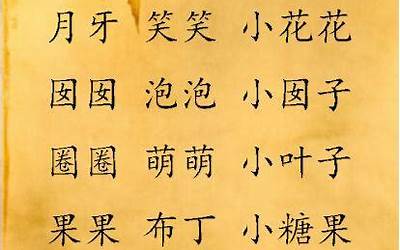 月牙 笑笑 小花花
囡囡 泡泡 小囡子
圈圈 萌萌 小叶子
果果 布丁 小糖果